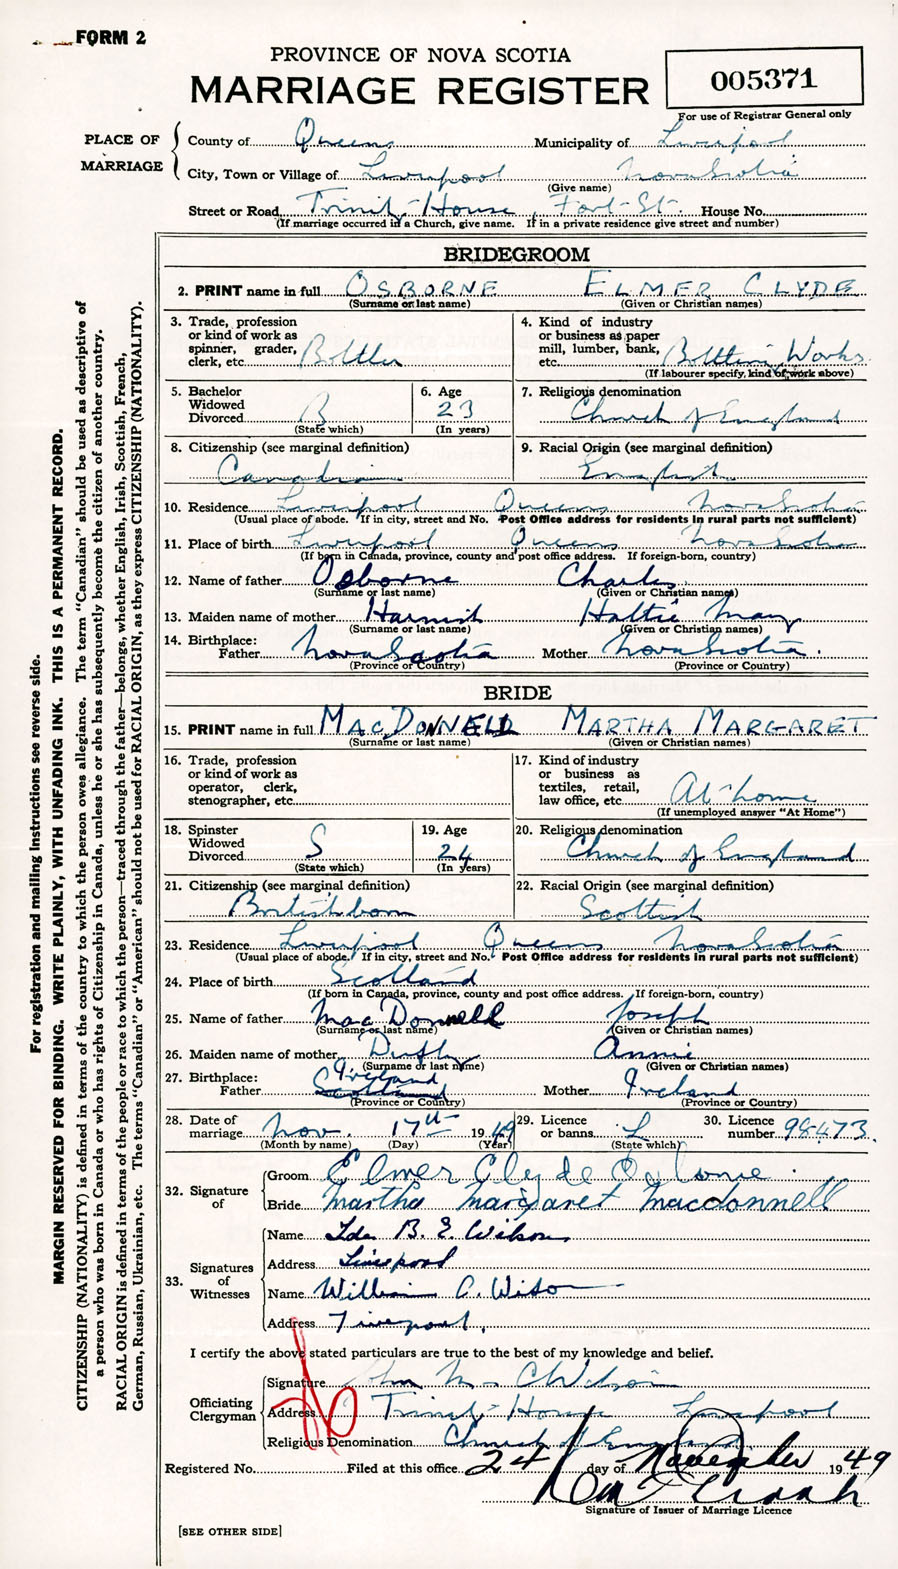 FORM 2
PROVINCE OF NOVA SCOTIA
MARRIAGE REGISTER
005371
For use of Registrar General only
PLACE OF MARRIAGE
County of Queens Municipality of Liverpool
City, Town or Village of Liverpool Nova Scotia
(Give name)
Street or Road Trinity House Fort St. House No.
(If marriage occurred in a Church, give name. If in a private residence give street and number)
BRIDEGROOM
2. PRINT name in full OSBORNE ELMER CLYDE
(Surname or last name) (Given or Christian names)
3. Trade, profession or kind of work as spinner, grader, clerk, etc. Bottler
4. Kind of industry or business as paper mill, lumber, bank, etc. Bottling Works
(If labourer specify, kind of work above)
5. Bachelor Widowed Divorced B
(State which)
6. Age 23
(In years)
7. Religious denomination Church of England
8. Citizenship (see marginal definition) Canadian
9. Racial Origin (see marginal definition) English
10. Residence Liverpool Queens Nova Scotia
(Usual place of abode. If in city, street and No. Post Office address for residents in rural parts not sufficient)
11. Place of birth Liverpool Queens Nova Scotia
(If born in Canada, province, county and post office address. If foreign-born, country)
12. Name of father Osborne Charles
(Surname or last name) (Given or Christian names)
13. Maiden name of mother Harnish Hattie May
(Surname or last name) (Given or Christian names)
14. Birthplace:
Father Nova Scotia Mother Nova Scotia.
(Province or Country) (Province or Country)
BRIDE
15. PRINT name in full MACDONNELL MARTHA MARGARET
(Surname or last name) (Given or Christian names)
16. Trade, profession or kind of work as operator, clerk, stenographer, etc.
17. Kind of industry or business as textiles, retail, law office, etc. At home
(If unemployed answer "At Home")
18. Spinster Widowed Divorced S
(State which)
19. Age 24
(In years)
20. Religious denomination Church of England
21. Citizenship (see marginal definition) British born
22. Racial Origin (see marginal definition) Scottish
23. Residence Liverpool Queens Nova Scotia
(Usual place of abode. If in city, street and No. Post Office address for residents in rural parts not sufficient)
24. Place of birth Scotland
(If born in Canada, province, county and post office address. If foreign-born, country)
25. Name of father MacDonnell Joseph
(Surname or last name) (Given or Christian names)
26. Maiden name of mother Duffy Annie
(Surname or last name) (Given or Christian names)
27. Birthplace: Ireland
Father Scotland Mother Ireland
(Province or Country) (Province or Country)
28. Date of marriage Nov 17th 1949
(Month by name) (Day) (Year)
29. Licence or banns L
(State which)
30. Licence number 98473
32. Signature of
Groom Elmer Clyde Osborne
Bride Martha Margaret Macdonnell
33. Signatures of Witnesses
Name Ida B. E. Wilson
Address Liverpool
Name William C. Wilson
Address Liverpool.
I certify the above stated particulars are true to the best of my knowledge and belief.
Officiating Clergyman
Signature John M. C. Wilson
Address Trinity House Liverpool
Religious Denomination Church of England
Registered No. Filed at this office 24 day of November 1949
Signature of Issuer of Marriage Licence
[SEE OTHER SIDE]
For registration and mailing instructions see reverse side.
MARGIN RESERVED FOR BINDING. WRITE PLAINLY, WITH UNFADING INK. THIS IS A PERMANENT RECORD.
CITIZENSHIP (NATIONALITY) is defined in terms of the country to which the person owes allegiance. The term "Canadian" should be used as descriptive of
a person who was born in Canada or who has rights of Citizenship in Canada, unless he or she has subsequently become the citizen of another country.
RACIAL ORIGIN is defined in terms of the people or race to which the person—traced through the father—belongs, whether English, Irish, Scottish, French,
German, Russian, Ukrainian, etc. The terms "Canadian" or "American" should not be used for RACIAL ORIGIN, as they express CITIZENSHIP (NATIONALITY).